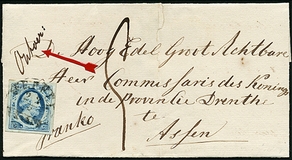 Den
Hoog Edel Groot Achtbare
Heer Commissaris des Konings
in de Provincie Drenthe
te
Assen
franko